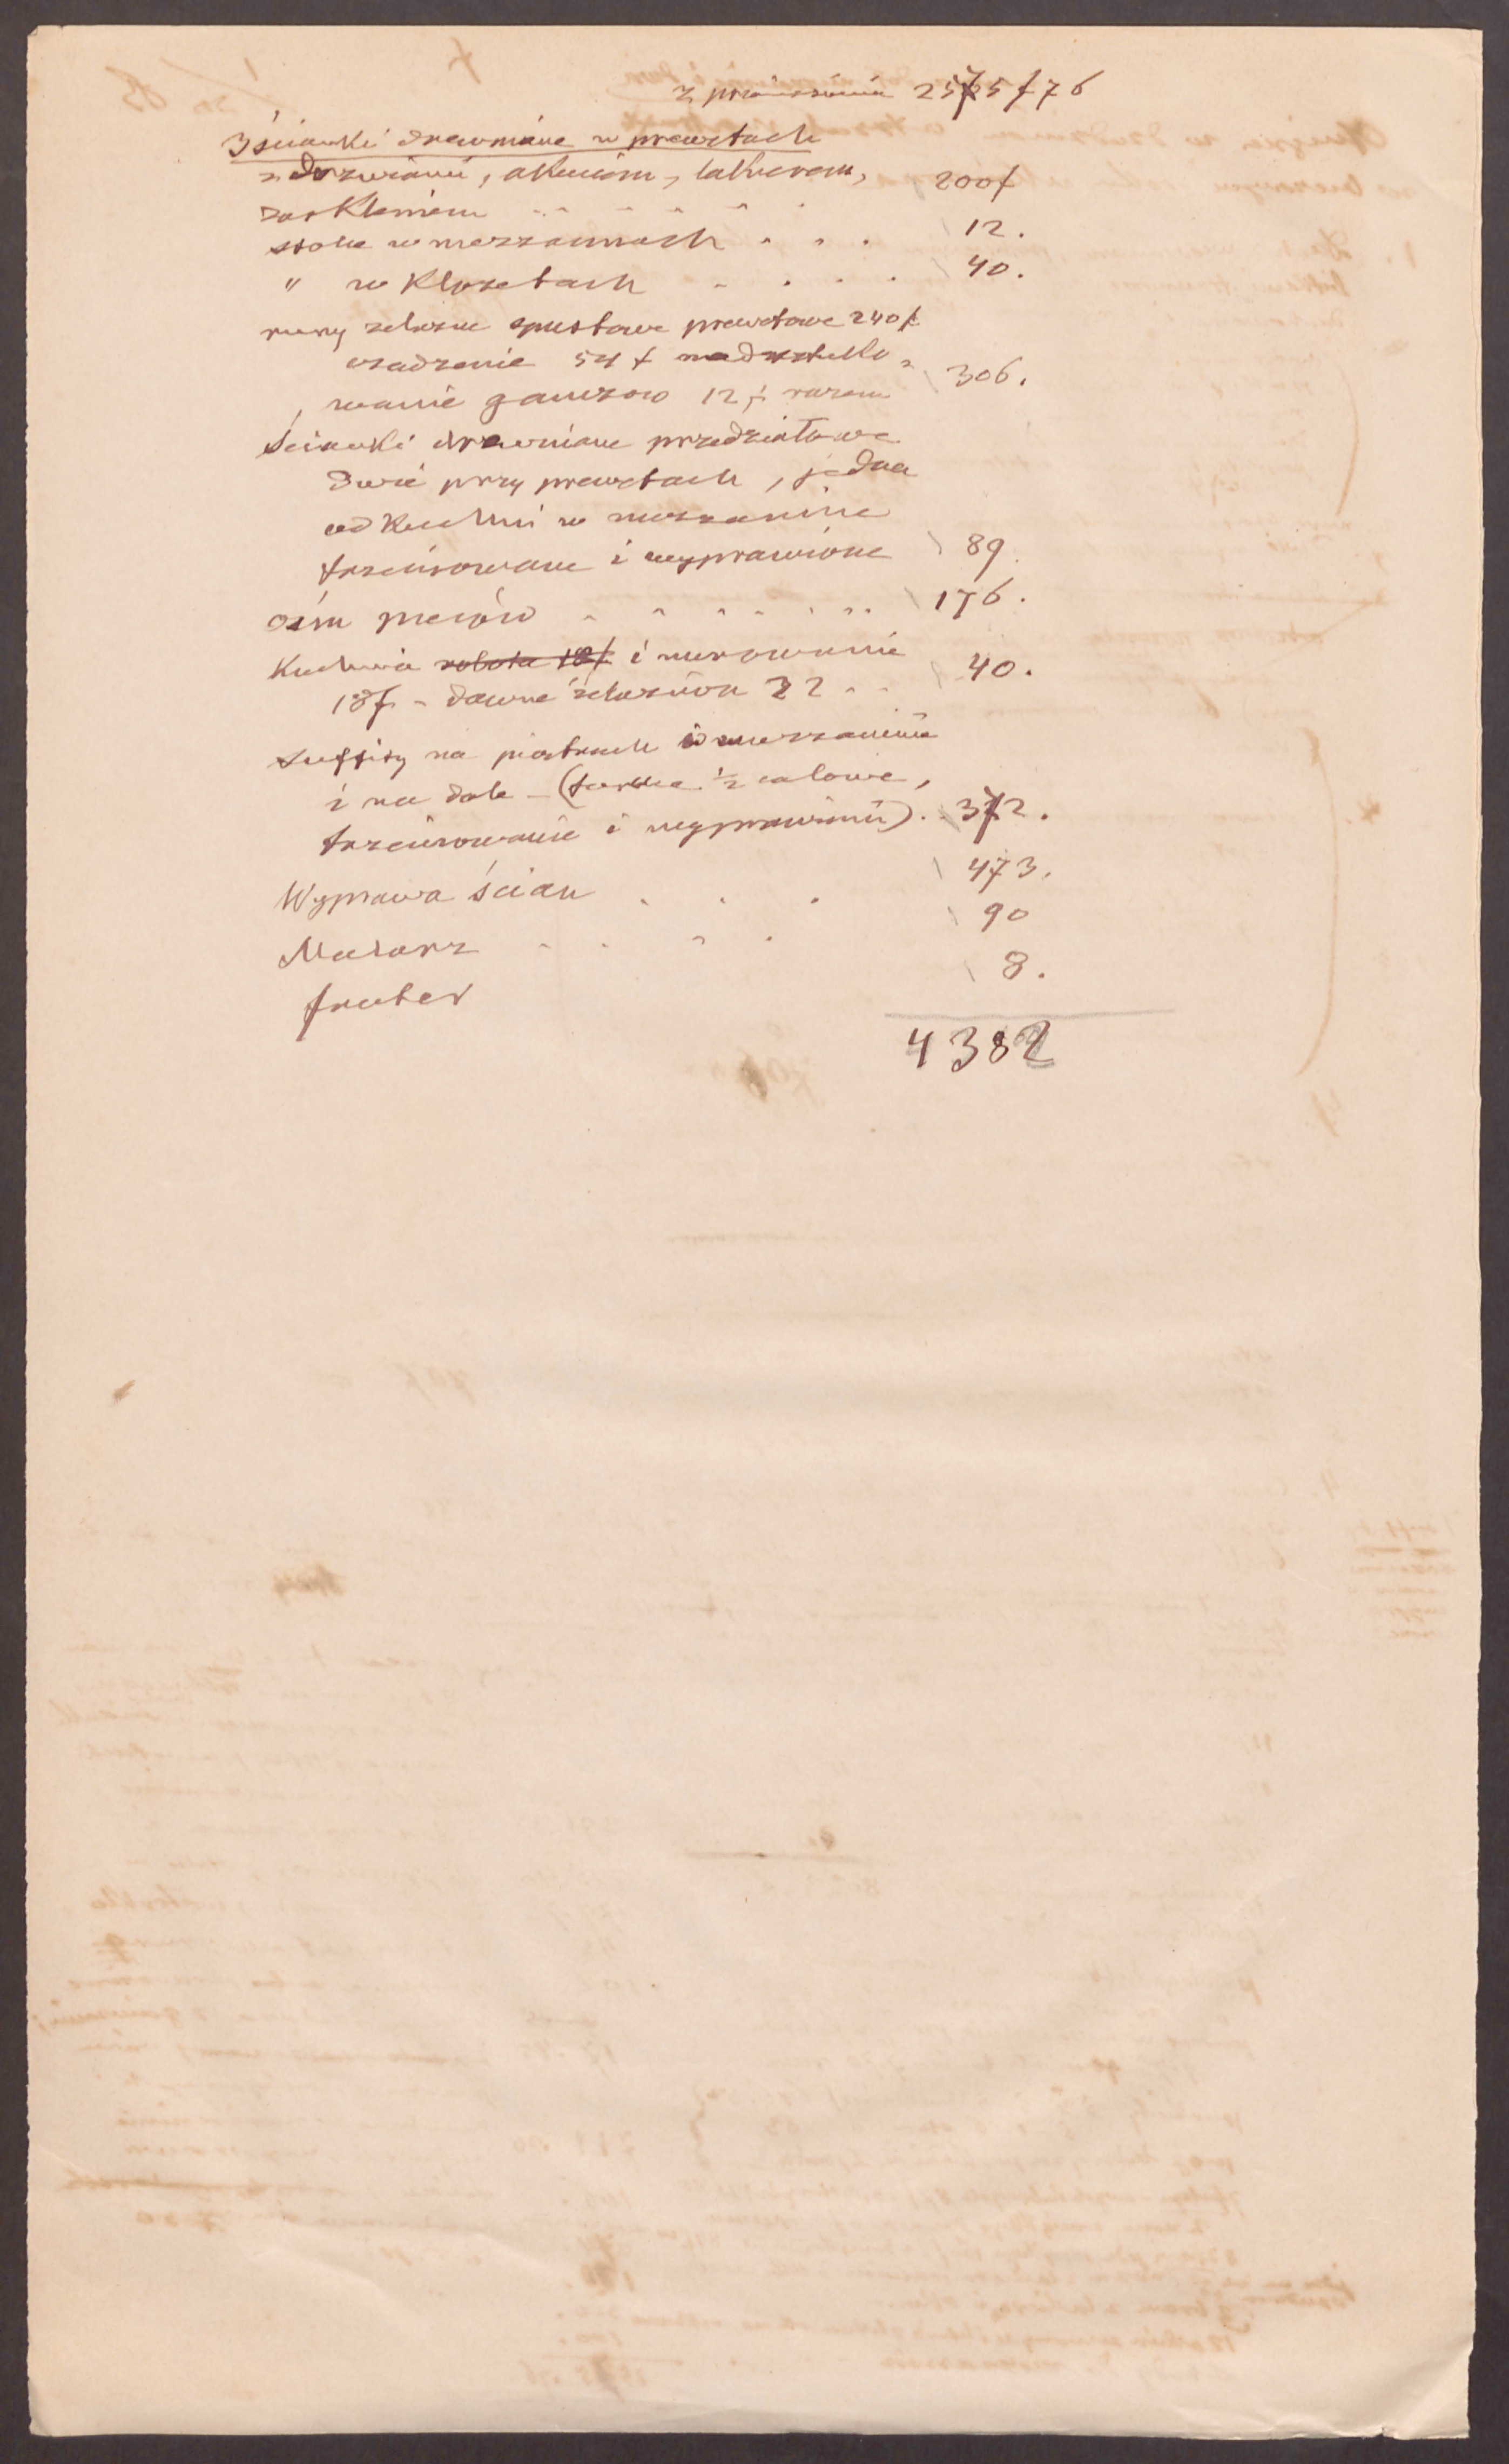 z przeniesienia 2575 f 76
3 ścianki drewniane w prewetach
z drzwiami, okuciem, lakierem,
zaszkleniem . . . . . 200 f
stolce w mezzaninach . . . 12.
" w klozetach . . . . 40.
rury żelazne spustowe prewetowe 240 f
osadzenie 54 f nadsztuko-
wanie gainzow 12 f razem 306.
ścianki drewniane przedziałowe
dwie przy prewetach, jedna
od kuchni w mezzaninie
trzcinowane i wyprawione 89.
ośm pieców . . . . . . 176.
Kuchnia robota 18 f i murowanie
18 f - dawne żelaziwa 22 . . 40.
suffity na piętrach i w mezzaninie
i na dole - (ford. ½ calowe,
trzcinowanie i wyprawienie) . 372.
Wyprawa ścian . . . 473.
Malarz . . . . 90
8.
4382